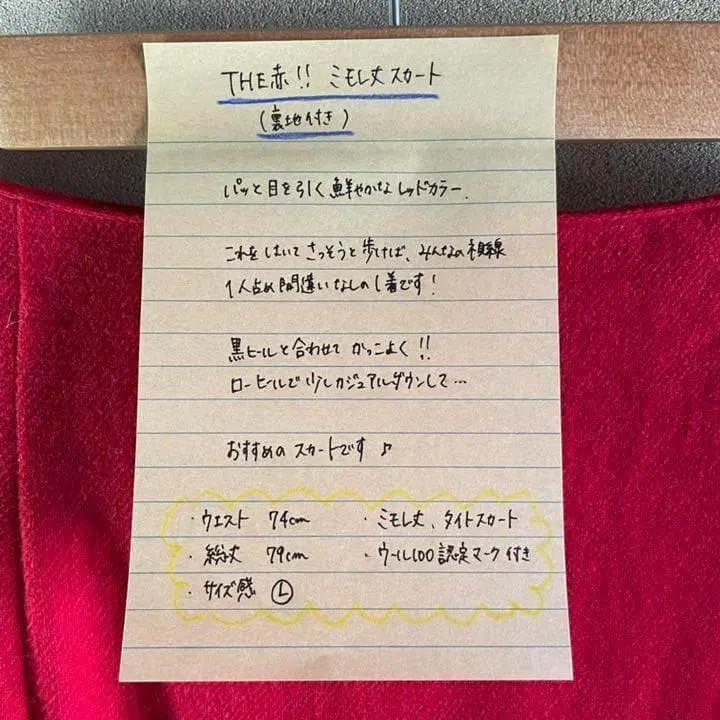 THE赤!! ミモレ丈スカート
(裏地付き)
パッと目を引く鮮やかなレッドカラー.
これをはいてさっそうと歩けば、みんなの視線
1人占め間違いなしの1着です!
黒ヒールと合わせてかっこよく!!
ローヒールで少しカジュアルダウンして…
おすすめのスカートです♪
・ウエスト 74cm ・ミモレ丈、タイトスカート
・総丈 79cm ・ウール100認定マーク付き
・サイズ感 Ⓛ